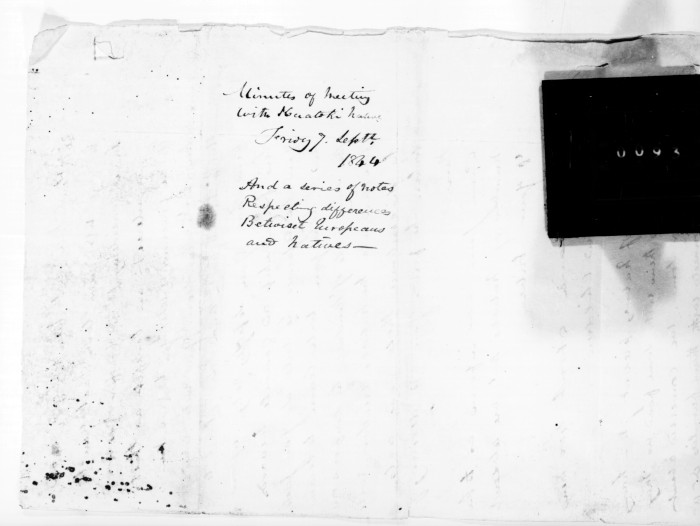 Minutes of Meeting
with Huatoki Natives
Friday 7. Septr.
1844
And a series of notes
Respecting differences
Betwixt Europeans
and Natives—